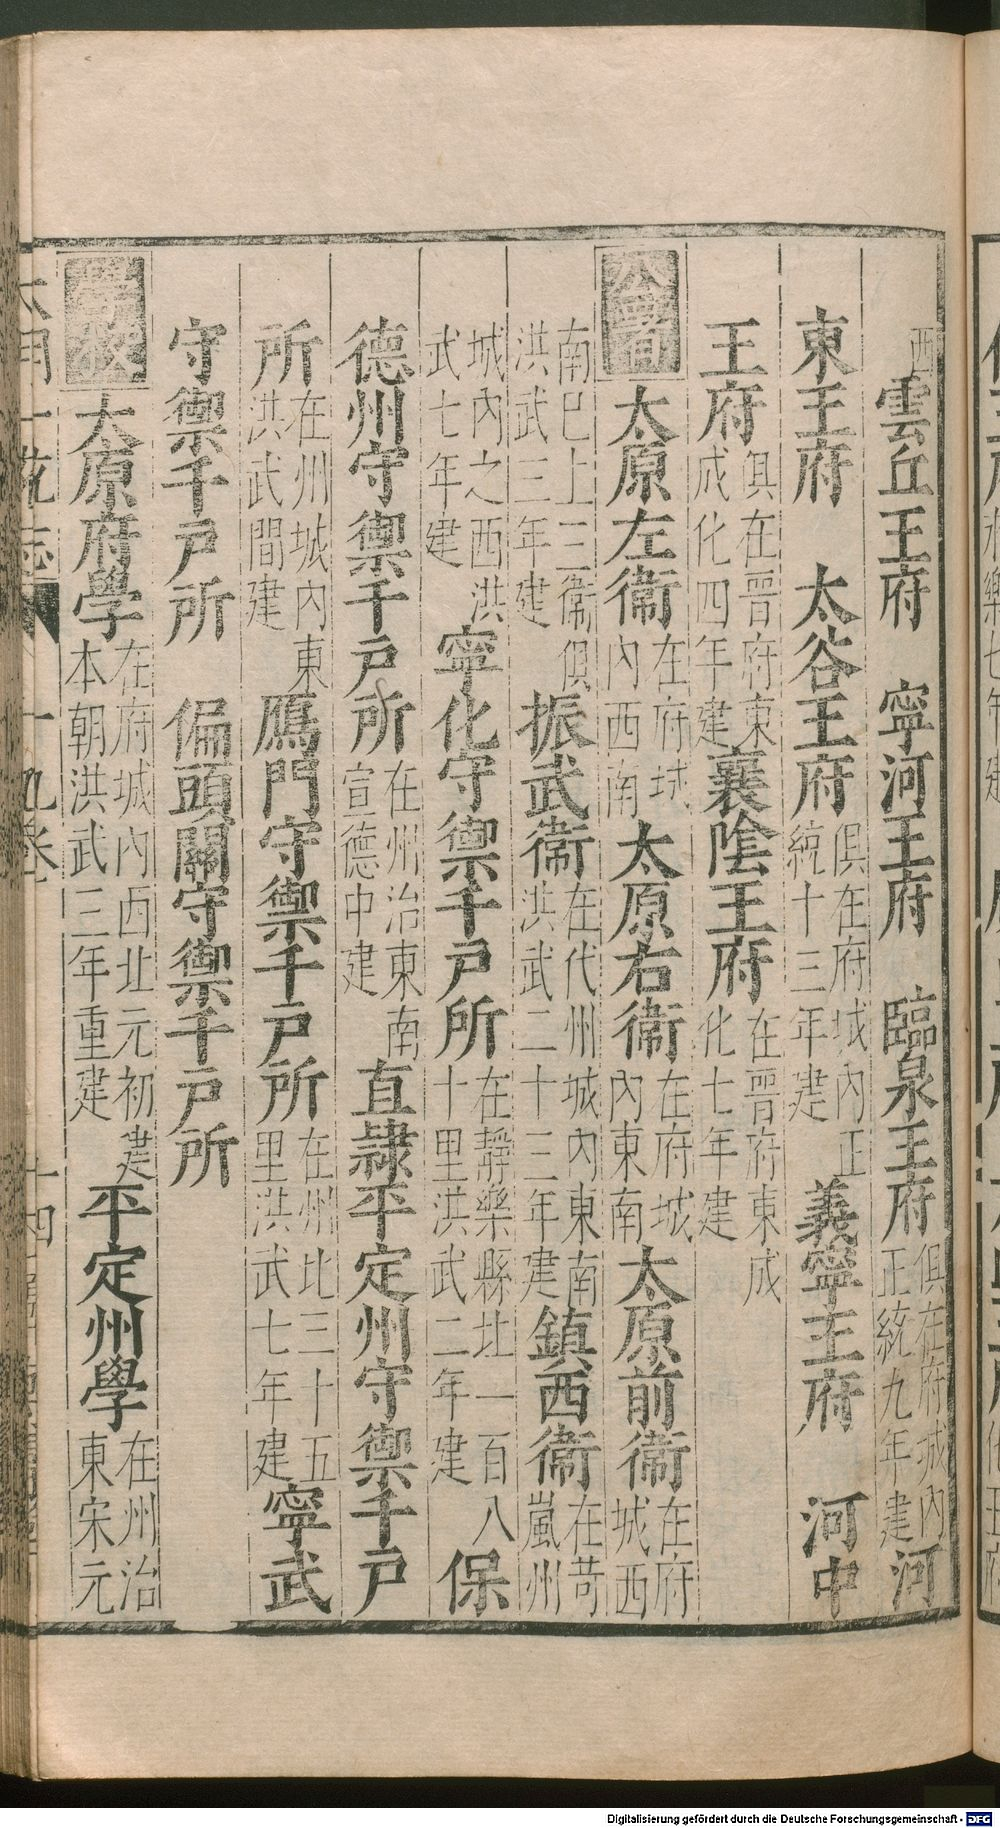 西雲丘王府　寧河王府　臨泉王府俱在府城內正統九年建河
東王府　太谷王府俱在府城內正統十三年建義寧王府　河中
王府俱在晉府東成化四年建襄陰王府在晉府東成化七年建
公署太原左衞在府城內西南太原右衞在府城內東南太原前衞在府城西
南巳上三衞俱洪武三年建振武衞在代州城內東南洪武二十三年建鎮西衞在苛嵐州
城內之西洪武七年建寧化守禦千戶所在靜樂縣北一百八十里洪武二年建保
德州守禦千戶所在州治東南宣德中建直隷平定州守禦千戶
所在州城內東洪武間建鴈門守禦千戶所在州北三十五里洪武七年建寧武
守禦千戶所　偏頭關守禦千戶所
學校太原府學在府城內西北元初建本朝洪武三年重建平定州學在州治東宋元
一統志　十九卷　十四
Digitalisierung gefördert durch die Deutsche Forschungsgemeinschaft - DFG